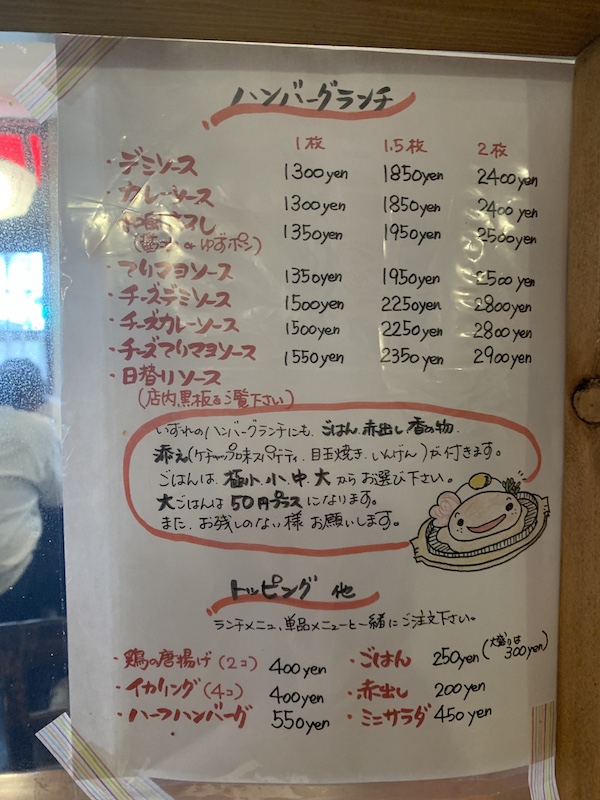 ハンバーグランチ
1枚 1.5枚 2枚
・デミソース 1300yen 1850yen 2400yen
・カレーソース 1300yen 1850yen 2400yen
・和風おろし 1350yen 1950yen 2500yen
(
or ゆずポン)
・てりマヨソース 1350yen 1950yen 2500yen
・チーズデミソース 1500yen 2250yen 2800yen
・チーズカレーソース 1500yen 2250yen 2800yen
・チーズてりマヨソース 1550yen 2350yen 2900yen
・日替りソース
(店内黒板をご覧下さい)
いずれのハンバーグランチにも、ごはん、赤出し、香の物、
添え(ケチャップ味スパゲティ、目玉焼き、いんげん)が付きます。
ごはんは、極小、小、中、大からお選び下さい。
大ごはんは50円プラスになります。
また、お残しのない様お願いします。
トッピング 他
ランチメニュー、単品メニューと一緒にご注文下さい。
・鶏の唐揚げ(2コ) 400yen ・ごはん 250yen (大盛りは300yen)
・イカリング(4コ) 400yen ・赤出し 200yen
・ハーフハンバーグ 550yen ・ミニサラダ 450yen